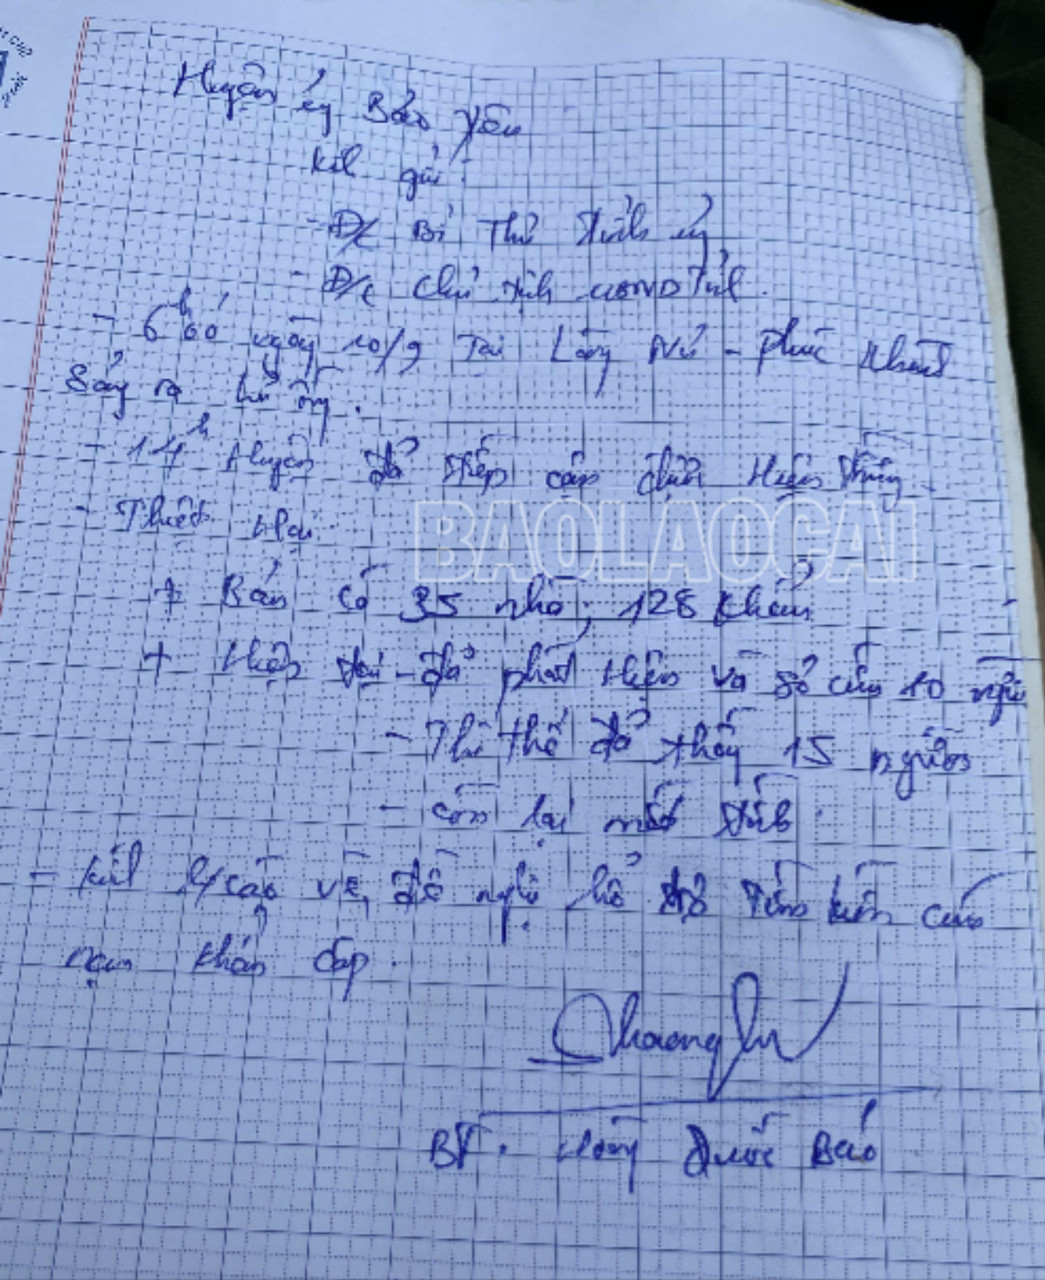 Huyện ủy Bảo Yên
Kính gửi:
- Đ/c Bí Thư Tỉnh ủy
- Đ/c Chủ tịch UBND Tỉnh.
- 6h00 ngày 10/9 Tại Làng Nủ - Phúc Khánh
Sảy ra lũ ống.
- 14h Huyện đã tiếp cận được Hiện trường
- Thiệt Hại:
+ Bản có 35 nhà, 128 khẩu
+ Hiện tại - đã phát hiện và sơ cứu 10 người
- Thi thể đã thấy 15 người
- còn lại mất tích.
- Kính b/cáo và đề nghị hỗ trợ Tìm kiếm cứu
nạn khẩn cấp.
BT. Hoàng Quốc Bảo
BAOLAOCAI